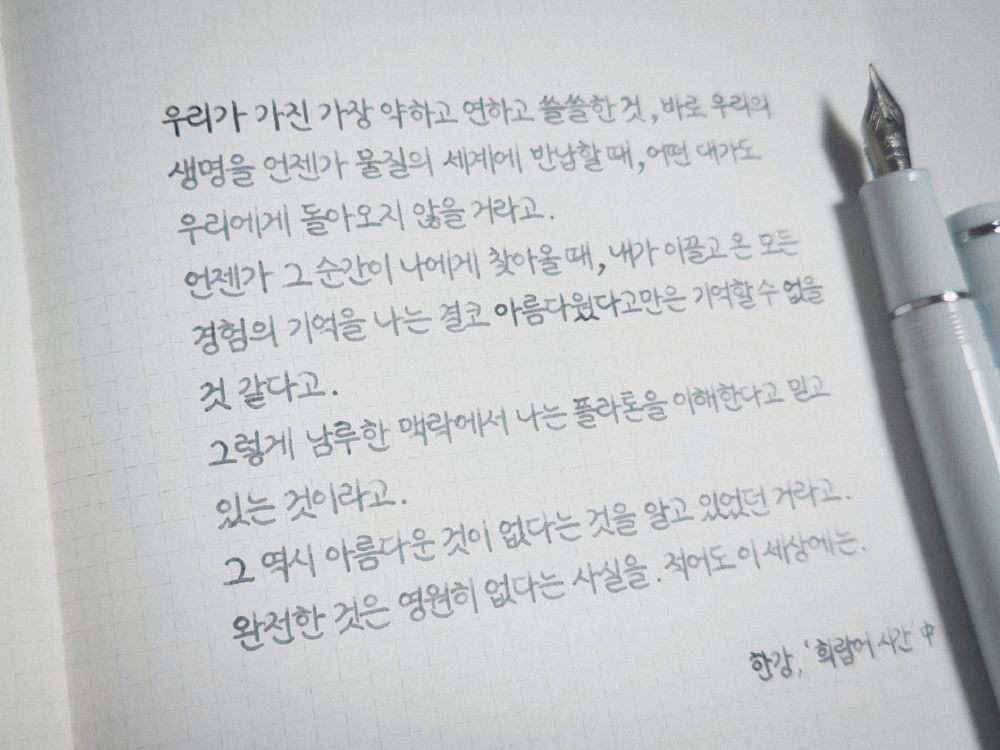 우리가 가진 가장 약하고 연하고 쓸쓸한 것, 바로 우리의
생명을 언젠가 물질의 세계에 반납할 때, 어떤 대가도
우리에게 돌아오지 않을 거라고.
언젠가 그 순간이 나에게 찾아올 때, 내가 이끌고 온 모든
경험의 기억을 나는 결코 아름다웠다고만은 기억할 수 없을
것 같다고.
그렇게 남루한 맥락에서 나는 플라톤을 이해한다고 믿고
있는 것이라고.
그 역시 아름다운 것이 없다는 것을 알고 있었던 거라고.
완전한 것은 영원히 없다는 사실을. 적어도 이 세상에는.
한강, '희랍어 시간' 中